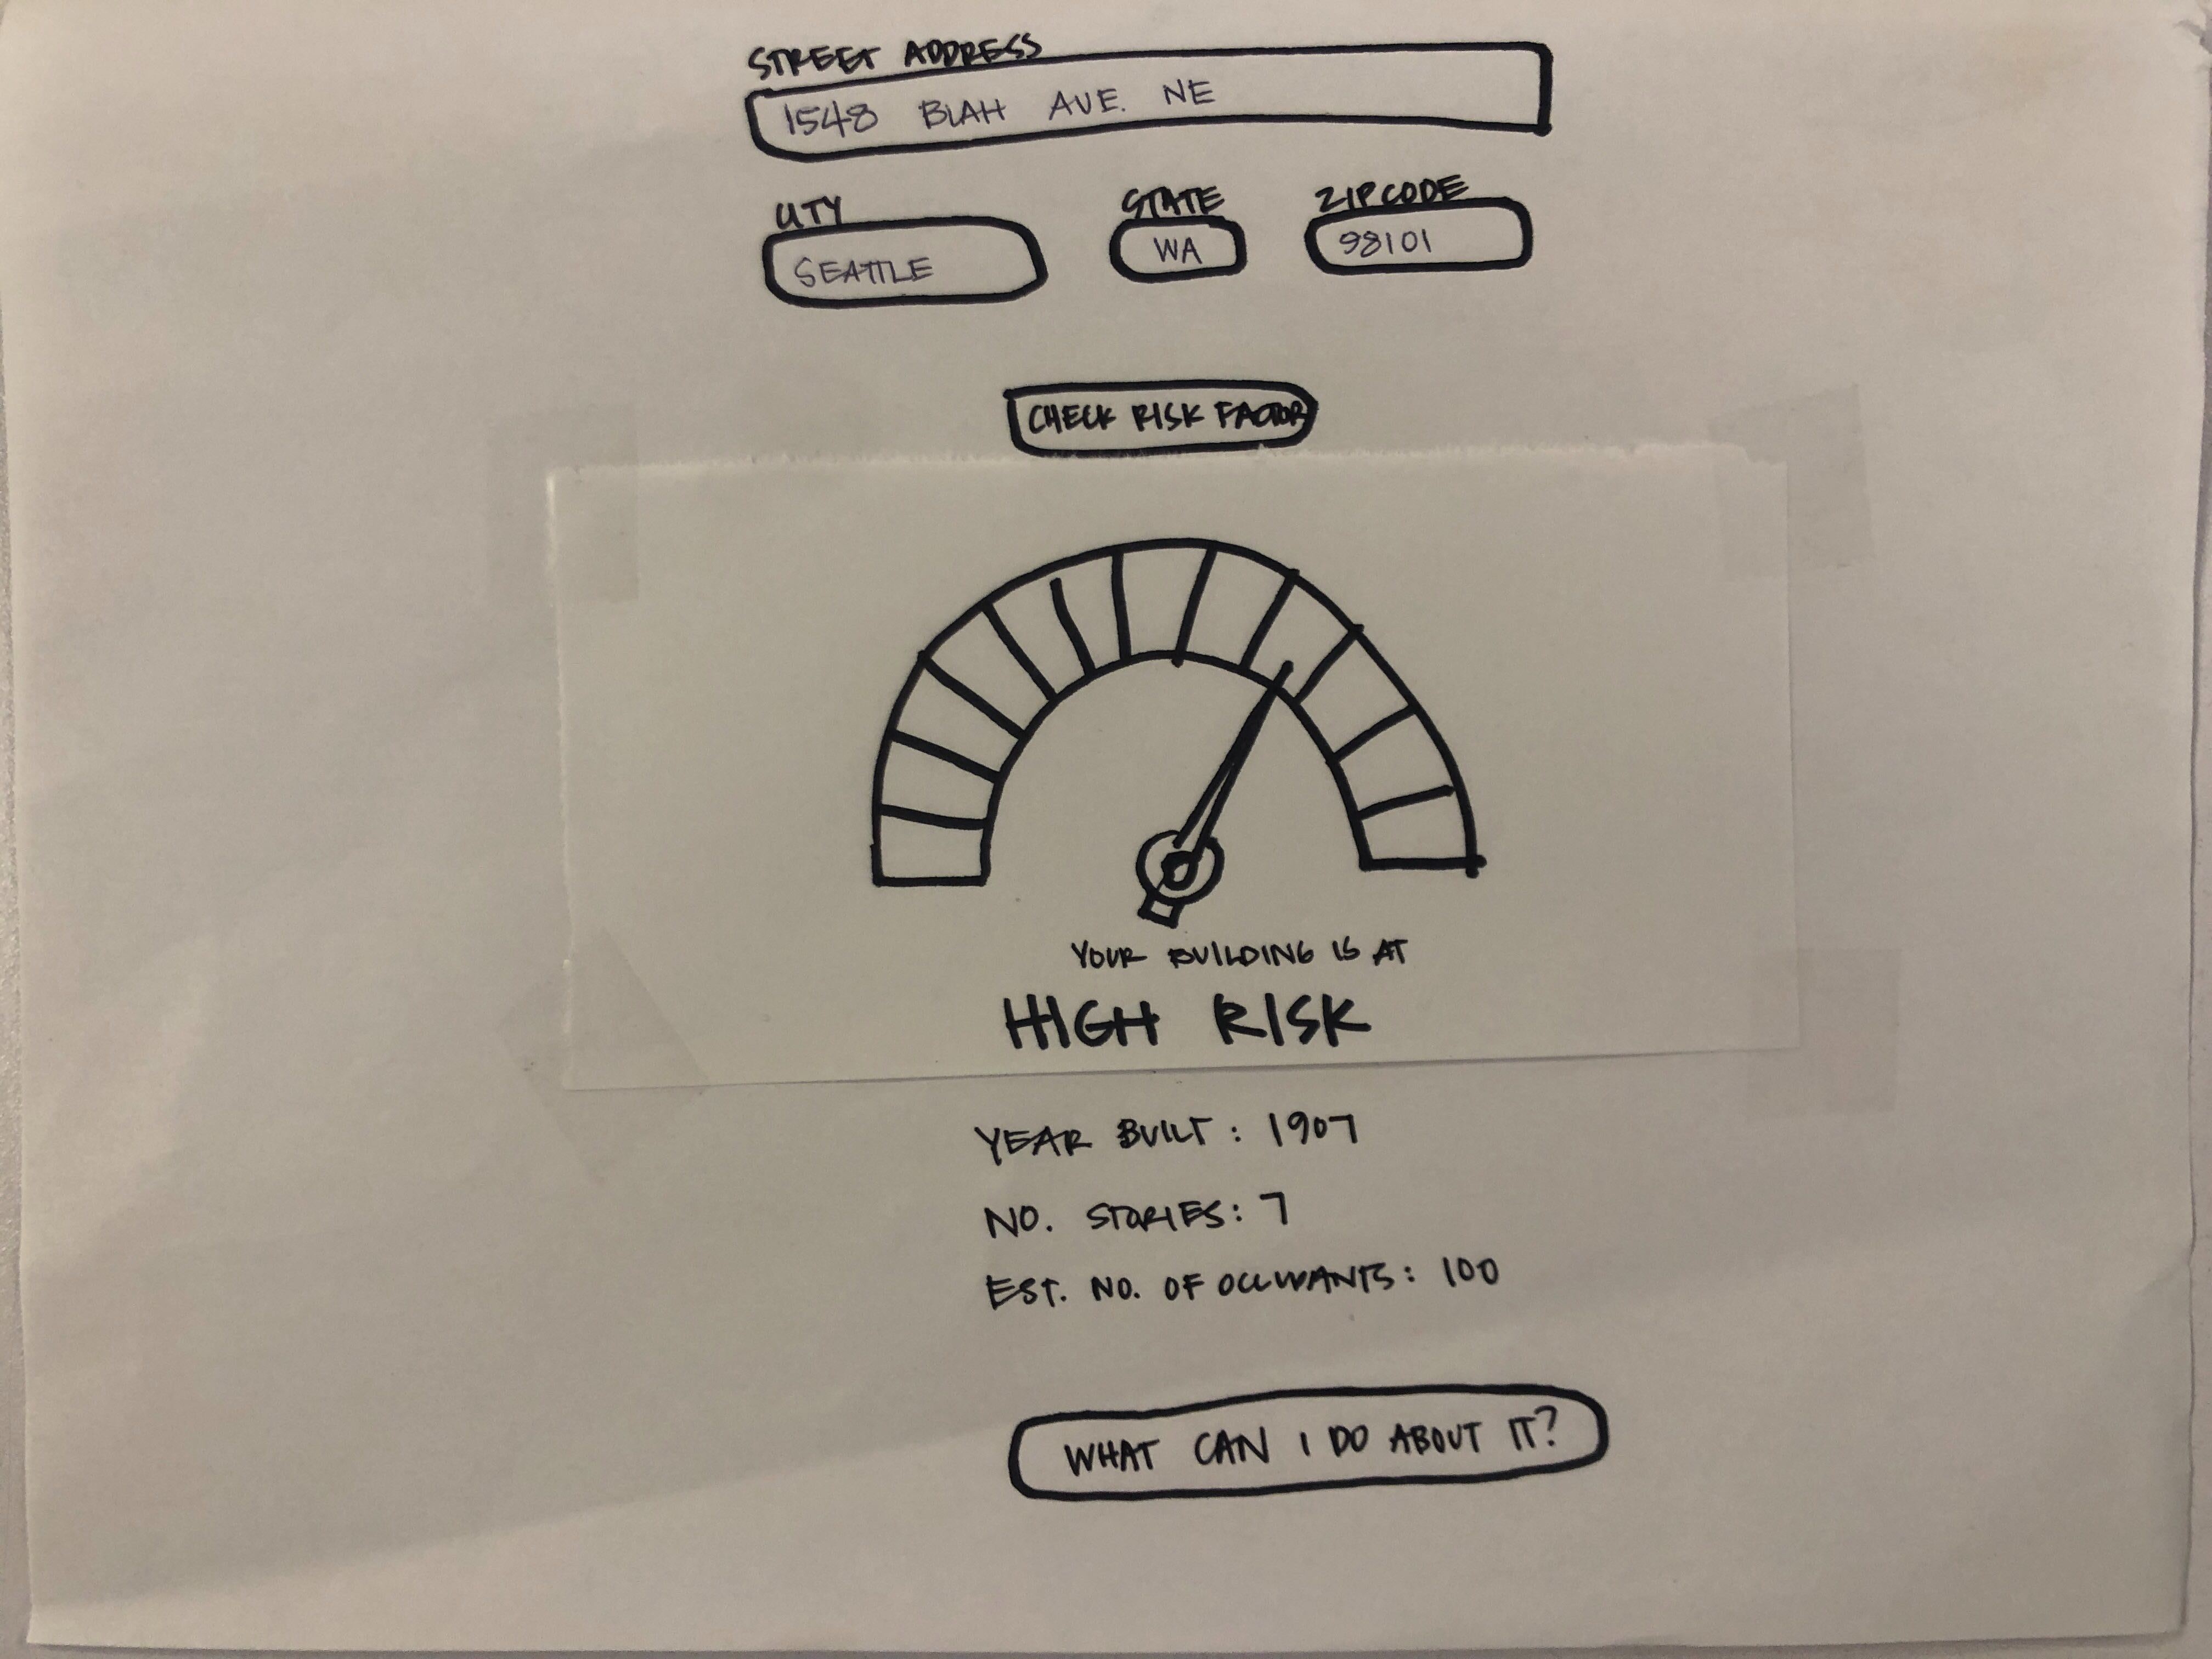 STREET ADDRESS
1548 BLAH AVE. NE
CITY STATE ZIPCODE
SEATTLE WA 98101
CHECK RISK FACTOR
YOUR BUILDING IS AT
HIGH RISK
YEAR BUILT: 1907
NO. STORIES: 7
EST. NO. OF OCCUPANTS: 100
WHAT CAN I DO ABOUT IT?